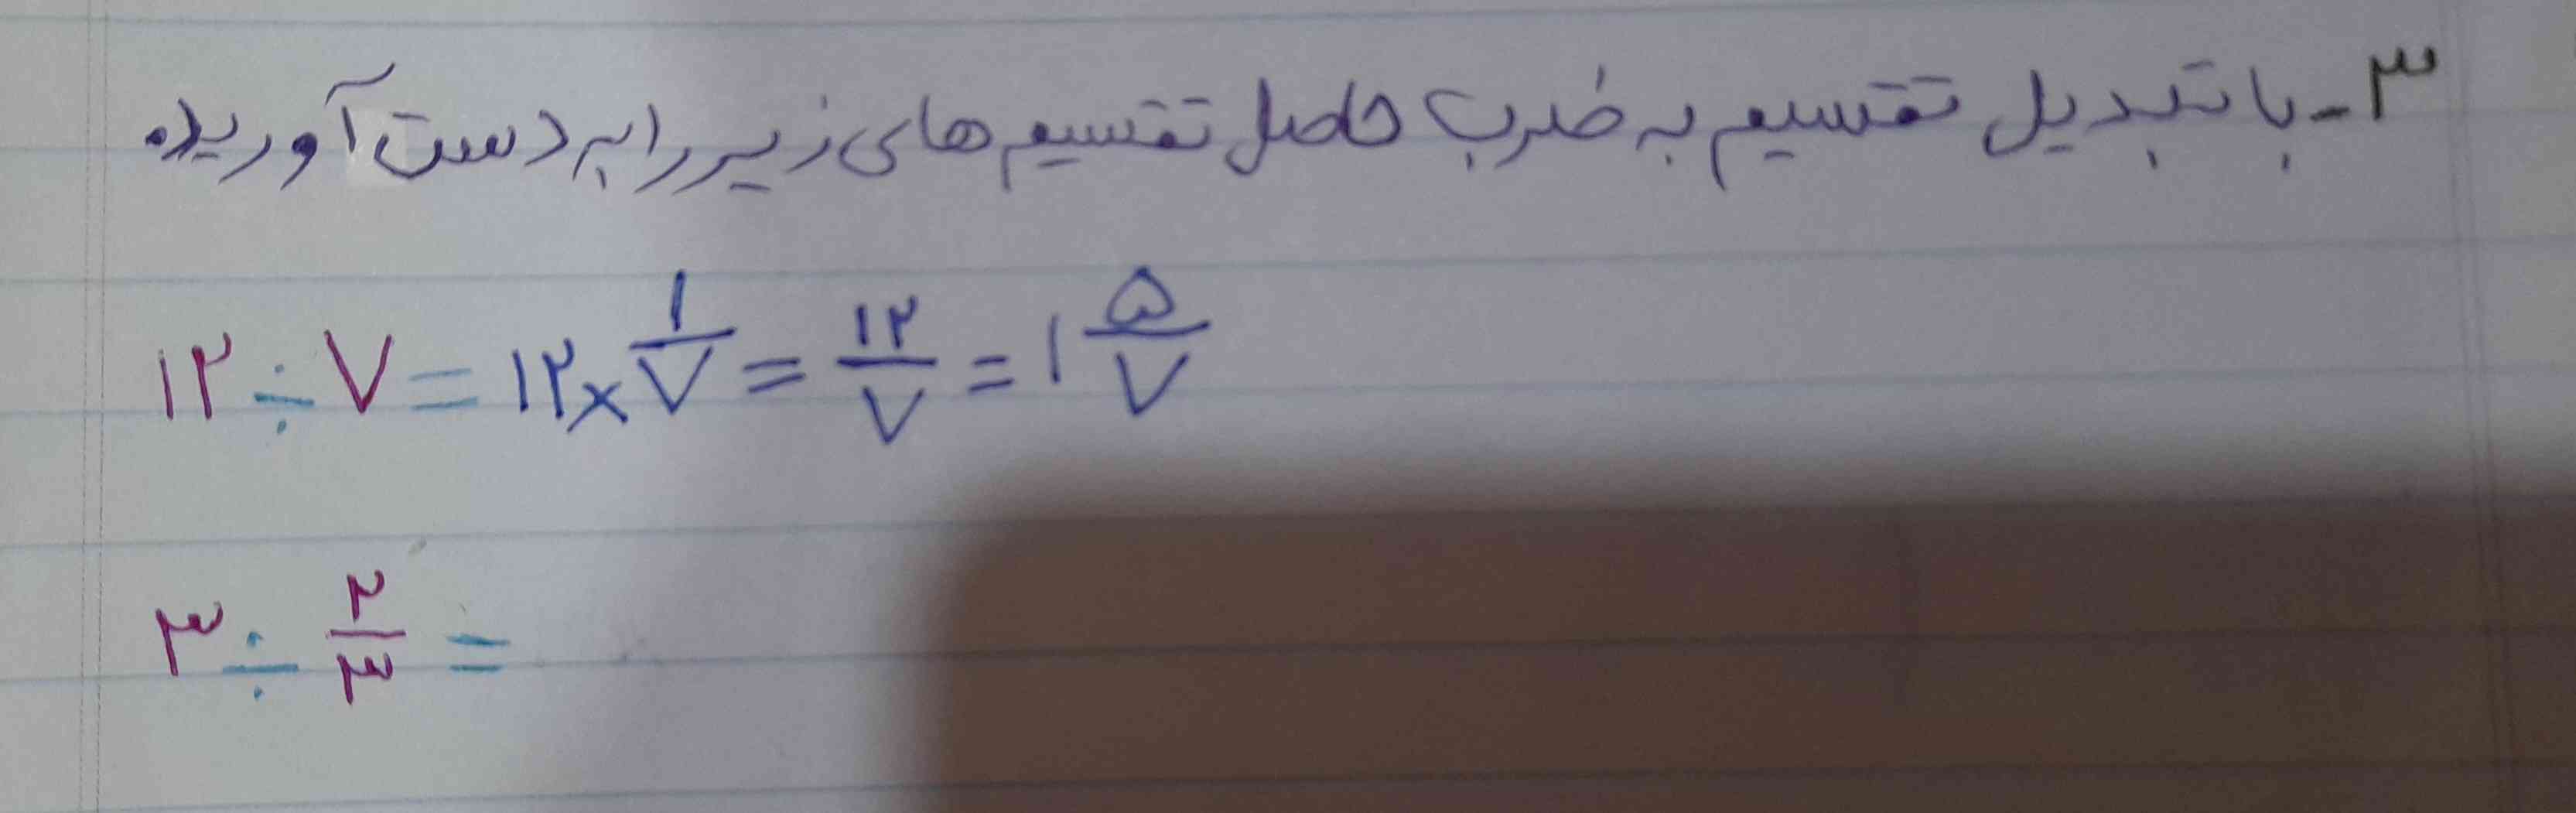 ۳- با تبدیل تقسیم به ضرب حاصل تقسیم های زیر را به دست آورید.
۱۲ ÷ ۷ = ۱۲ × ۱/۷ = ۱۲/۷ = ۱ ۵/۷
۳ ÷ ۲/۳ =